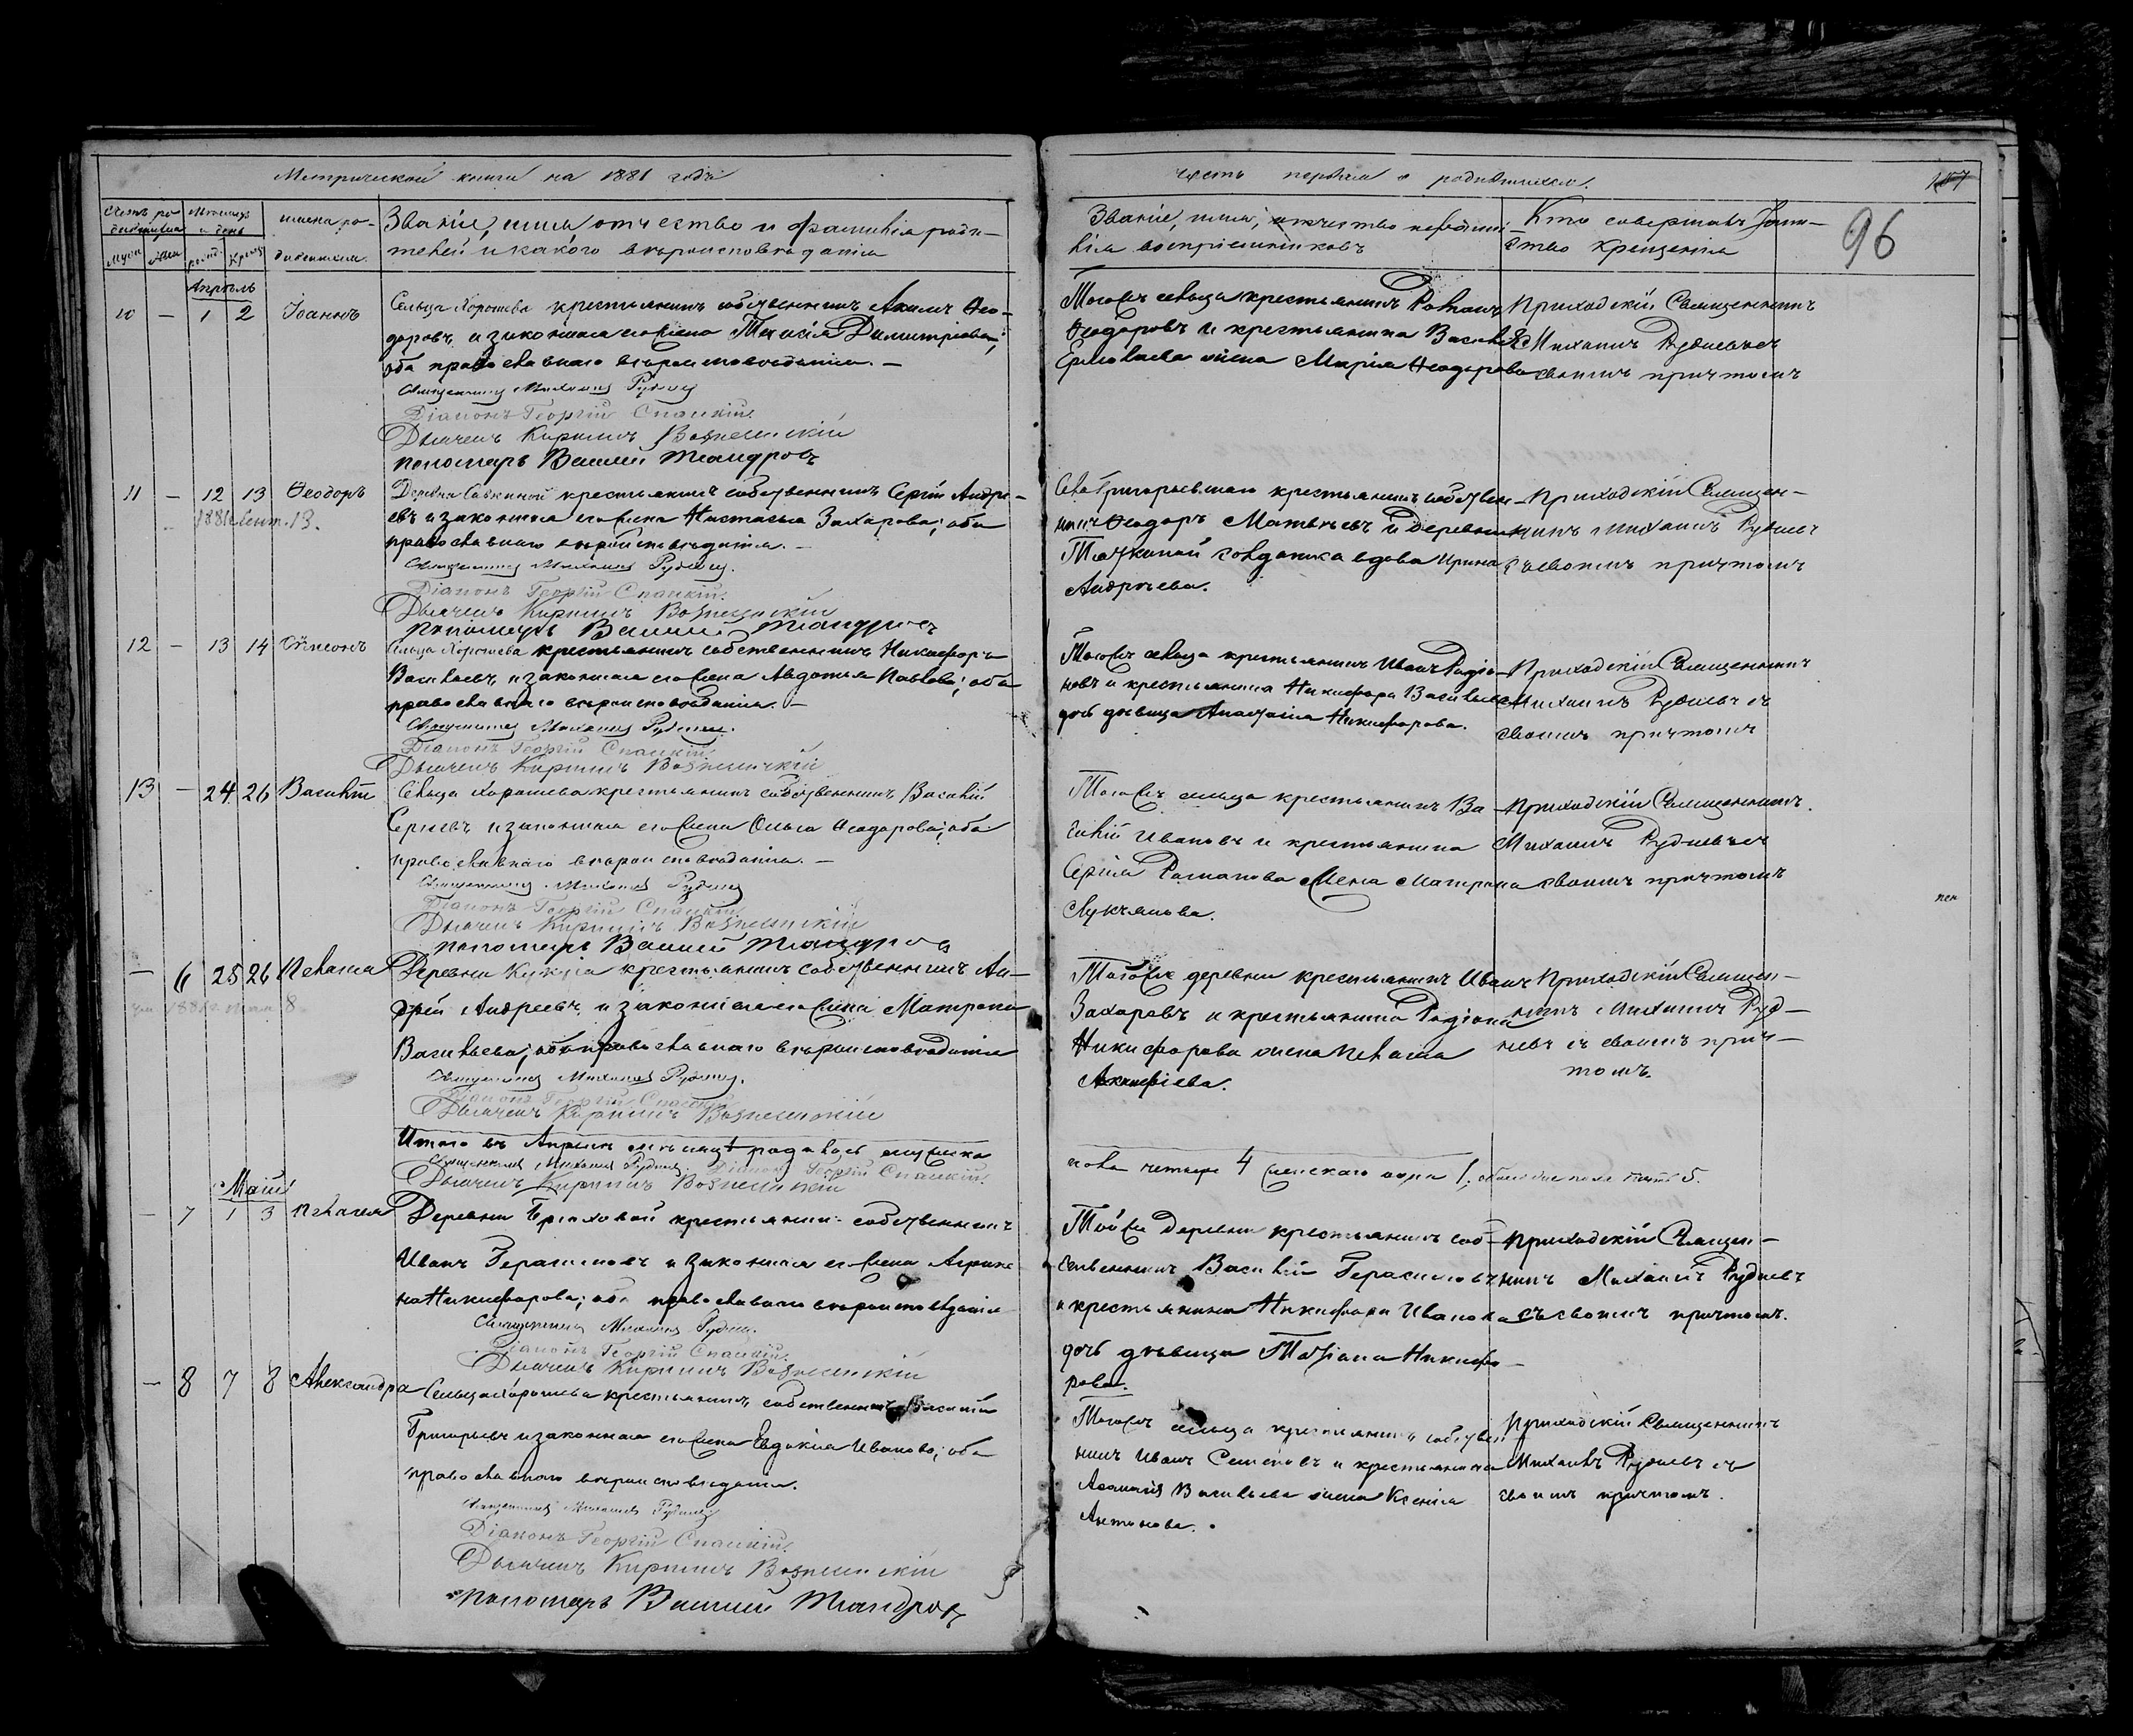 Метрической книги на 1881 годъ
часть первая о родившихся.
96
имена ро-
дившихся.
Званіе, имя, отчество и фамилія роди-
телей и какого вѣроисповѣданія
Званіе, имя, отчество и фамил-
ія воспріемниковъ
Кто совершалъ Таин-
ство крещенія
Апрѣль
10 — 1 2 Іоаннъ
Сельца Хорошева крестьянинъ собственникъ Ѳео-
доровъ и законная его жена Димитріева;
оба православнаго вѣроисповѣданія. —
Священникъ Михаилъ Рудневъ
Діаконъ Георгій Спасскій.
Дьячекъ Кириллъ Вознесенскій
пономарь Василій
Тогожъ сельца крестьянинъ Романъ
Ѳеодоровъ и крестьянина Василія
Ермолаева жена Марія Ѳеодорова
Приходскій Священникъ
Михаилъ Рудневъ съ
своимъ причтомъ
11 — 12 13 Ѳеодоръ
1881 Сент. 13.
Деревни крестьянинъ собственникъ Сергій Андре-
евъ и законная его жена Настасья Захарова; оба
православнаго вѣроисповѣданія. —
Священникъ Михаилъ Рудневъ.
Діаконъ Георгій Спасскій.
Дьячекъ Кириллъ Вознесенскій
пономарь Василій
Села крестьянинъ собствен-
никъ Ѳеодоръ Матвѣевъ и деревни
солдатка вдова Ирина
Андреева.
Приходскій Священ-
никъ Михаилъ Рудневъ
съ своимъ причтомъ
12 — 13 14 Сѷмеонъ
Сельца Хорошева крестьянинъ собственникъ Никифоръ
Васильевъ и законная его жена Авдотья Павлова; оба
православнаго вѣроисповѣданія. —
Священникъ Михаилъ Рудневъ.
Діаконъ Георгій Спасскій.
Дьячекъ Кириллъ Вознесенскій
Тогожъ сельца крестьянинъ Иванъ Родіо-
новъ и крестьянина Никифора Васильева
дочь дѣвица Анастасія Никифорова.
Приходскій Священникъ
Михаилъ Рудневъ съ
своимъ причтомъ
13 — 24 26 Василій
Сельца Хорошева крестьянинъ собственникъ Василій
Сергѣевъ и законная его жена Ольга Ѳеодорова; оба
православнаго вѣроисповѣданія. —
Священникъ Михаилъ Рудневъ
Діаконъ Георгій Спасскій.
Дьячекъ Кириллъ Вознесенскій
пономарь Василій
Тогожъ сельца крестьянинъ Ва-
силій Ивановъ и крестьянина
Сергія Романова жена Матрона
Лукьянова.
Приходскій Священникъ.
Михаилъ Рудневъ съ
своимъ причтомъ
— 6 25 26 Пелагія
Деревни крестьянинъ собственникъ Ан-
дрей Андреевъ и законная его жена Матрона
Васильева; оба православнаго вѣроисповѣданія
Священникъ Михаилъ Рудневъ.
Діаконъ Георгій Спасскій
Дьячекъ Кириллъ Вознесенскій
Тойже деревни крестьянинъ Иванъ
Захаровъ и крестьянина Родіона
Никифорова жена Пелагія
Приходскій Священ-
никъ Михаилъ Руд-
невъ съ своимъ прич-
томъ.
Итого въ Апрѣлѣ мѣсяцѣ родилось мужеска
Священникъ Михаилъ Рудневъ. Діаконъ Георгій Спасскій.
Дьячекъ Кириллъ Вознесенскій
пола четыре 4 женскаго одна 1, обоего пола пять 5.
Май
— 7 1 3 Пелагея
Деревни крестьянинъ собственникъ
Иванъ Герасимовъ и законная его жена Агрипи-
на Никифорова; оба православнаго вѣроисповѣданія
Священникъ Михаилъ Рудневъ.
Діаконъ Георгій Спасскій.
Дьячекъ Кириллъ Вознесенскій
Тойже деревни крестьянинъ соб-
ственникъ Василій Герасимовъ
и крестьянина Никифора Иванова
дочь дѣвица Татіана Никифо-
рова.
Приходскій Священ-
никъ Михаилъ Рудневъ
съ своимъ причтомъ.
— 8 7 8 Александра
Сельца Хорошева крестьянинъ собственникъ Василій
Григорьевъ и законная его жена Евдокія Иванова; оба
православнаго вѣроисповѣданія.
Священникъ Михаилъ Рудневъ
Діаконъ Георгій Спасскій.
Дьячекъ Кириллъ Вознесенскій
пономарь Василій
Тогожъ сельца крестьянинъ собствен-
никъ Иванъ Семеновъ и крестьянина
Аѳанасія Васильева жена Ксенія
Антонова.
Приходскій Священникъ
Михаилъ Рудневъ съ
своимъ причтомъ.